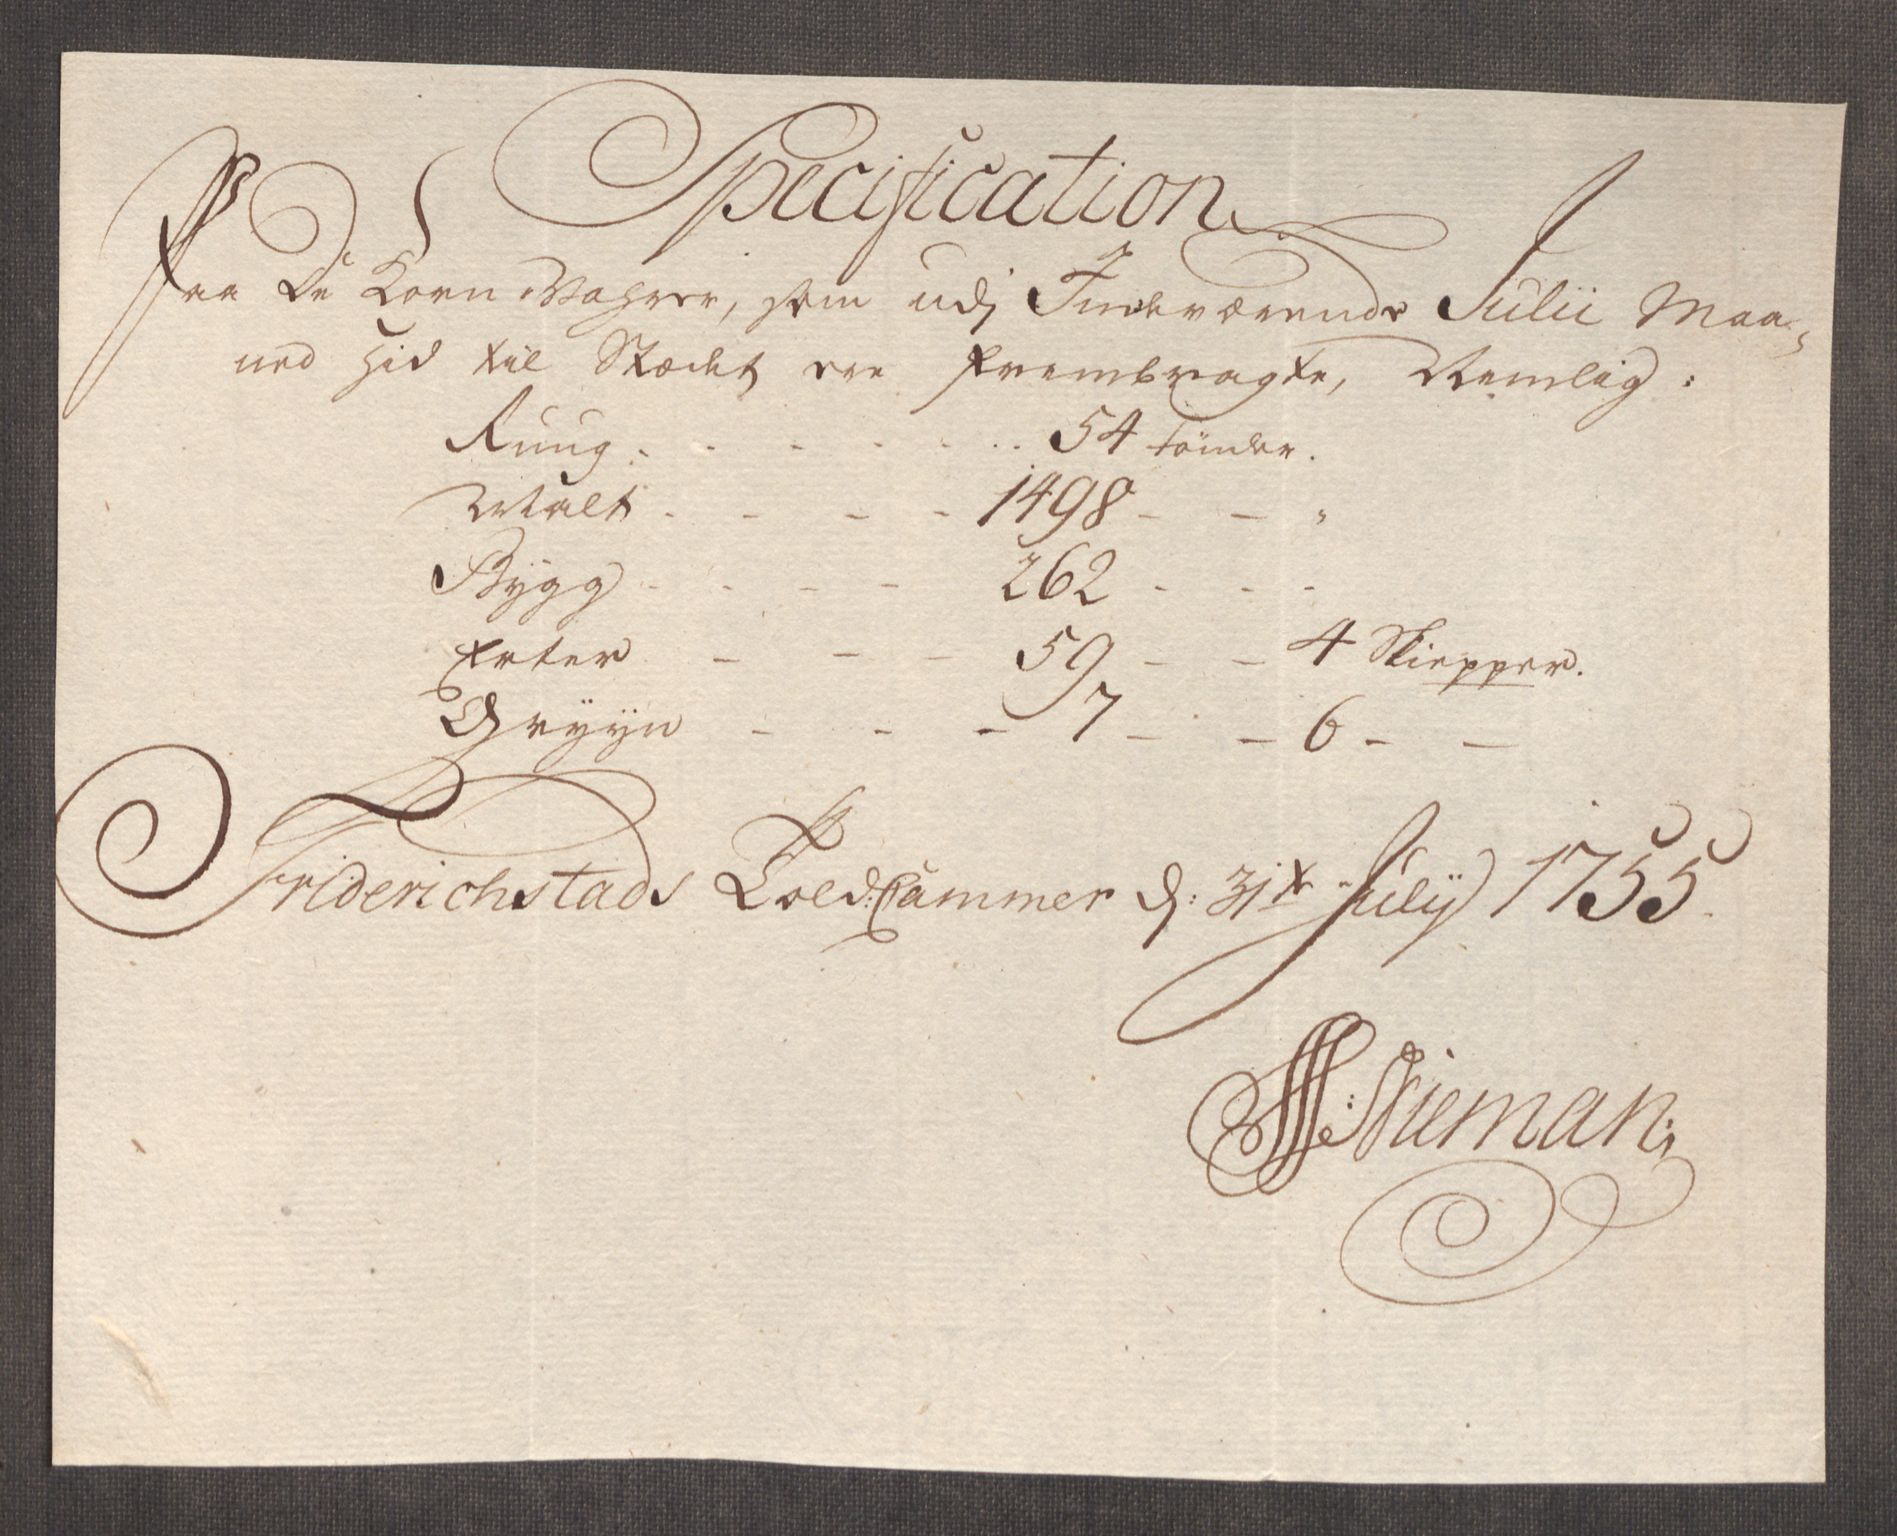 Specification
Paa De Korn Vahrer, som udj Indeværende Julii Maa-
ned hid til Stædet ere frembragte, Nemlig:
Ruug . . . . . . 54 tønder.
Malt . - - - 1498 - - "
Bygg - - - - 262 - - -
Erter - - - 59 - - 4 Skiepper.
Gryyn - - - 7 - - 6 - -
Friderichstads Told-Cammer d: 31te Julÿ 1755.
Nieman